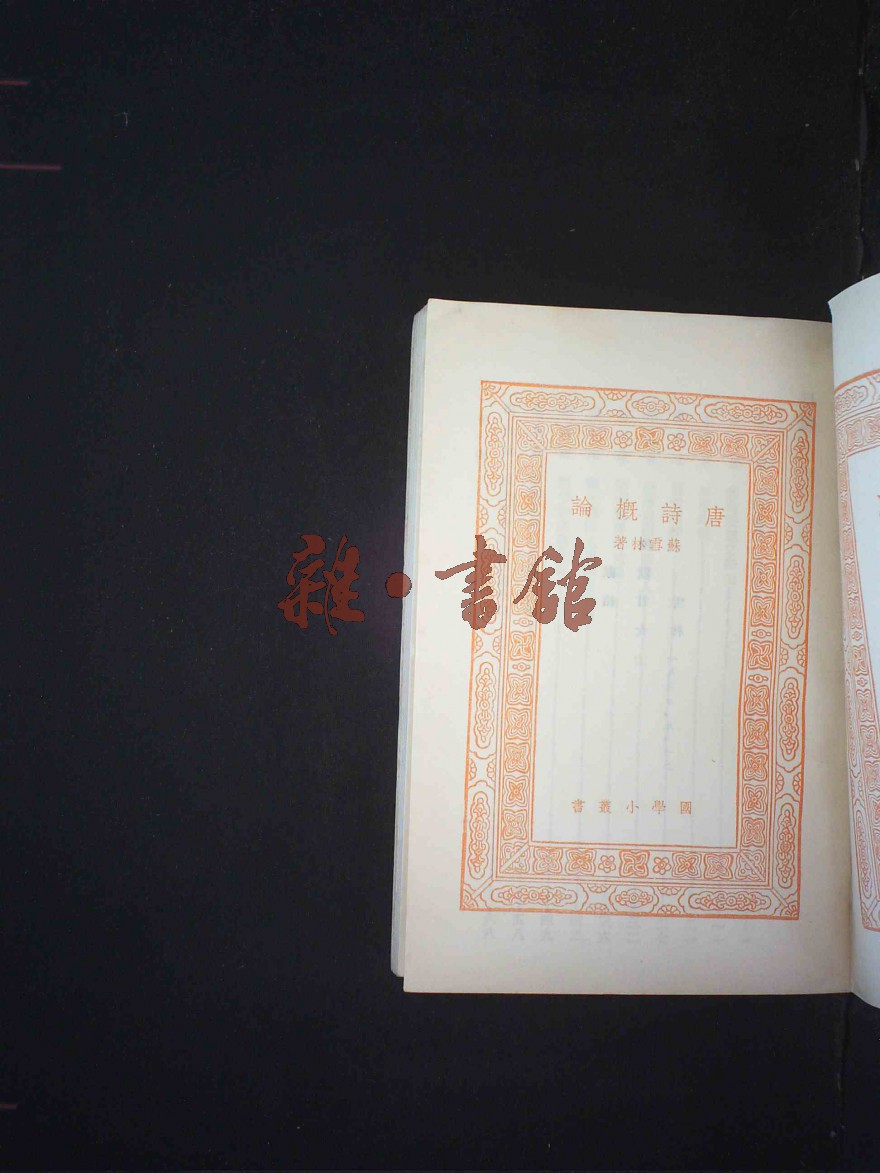 唐詩概論
蘇雪林著
雜·書館
國學小叢書